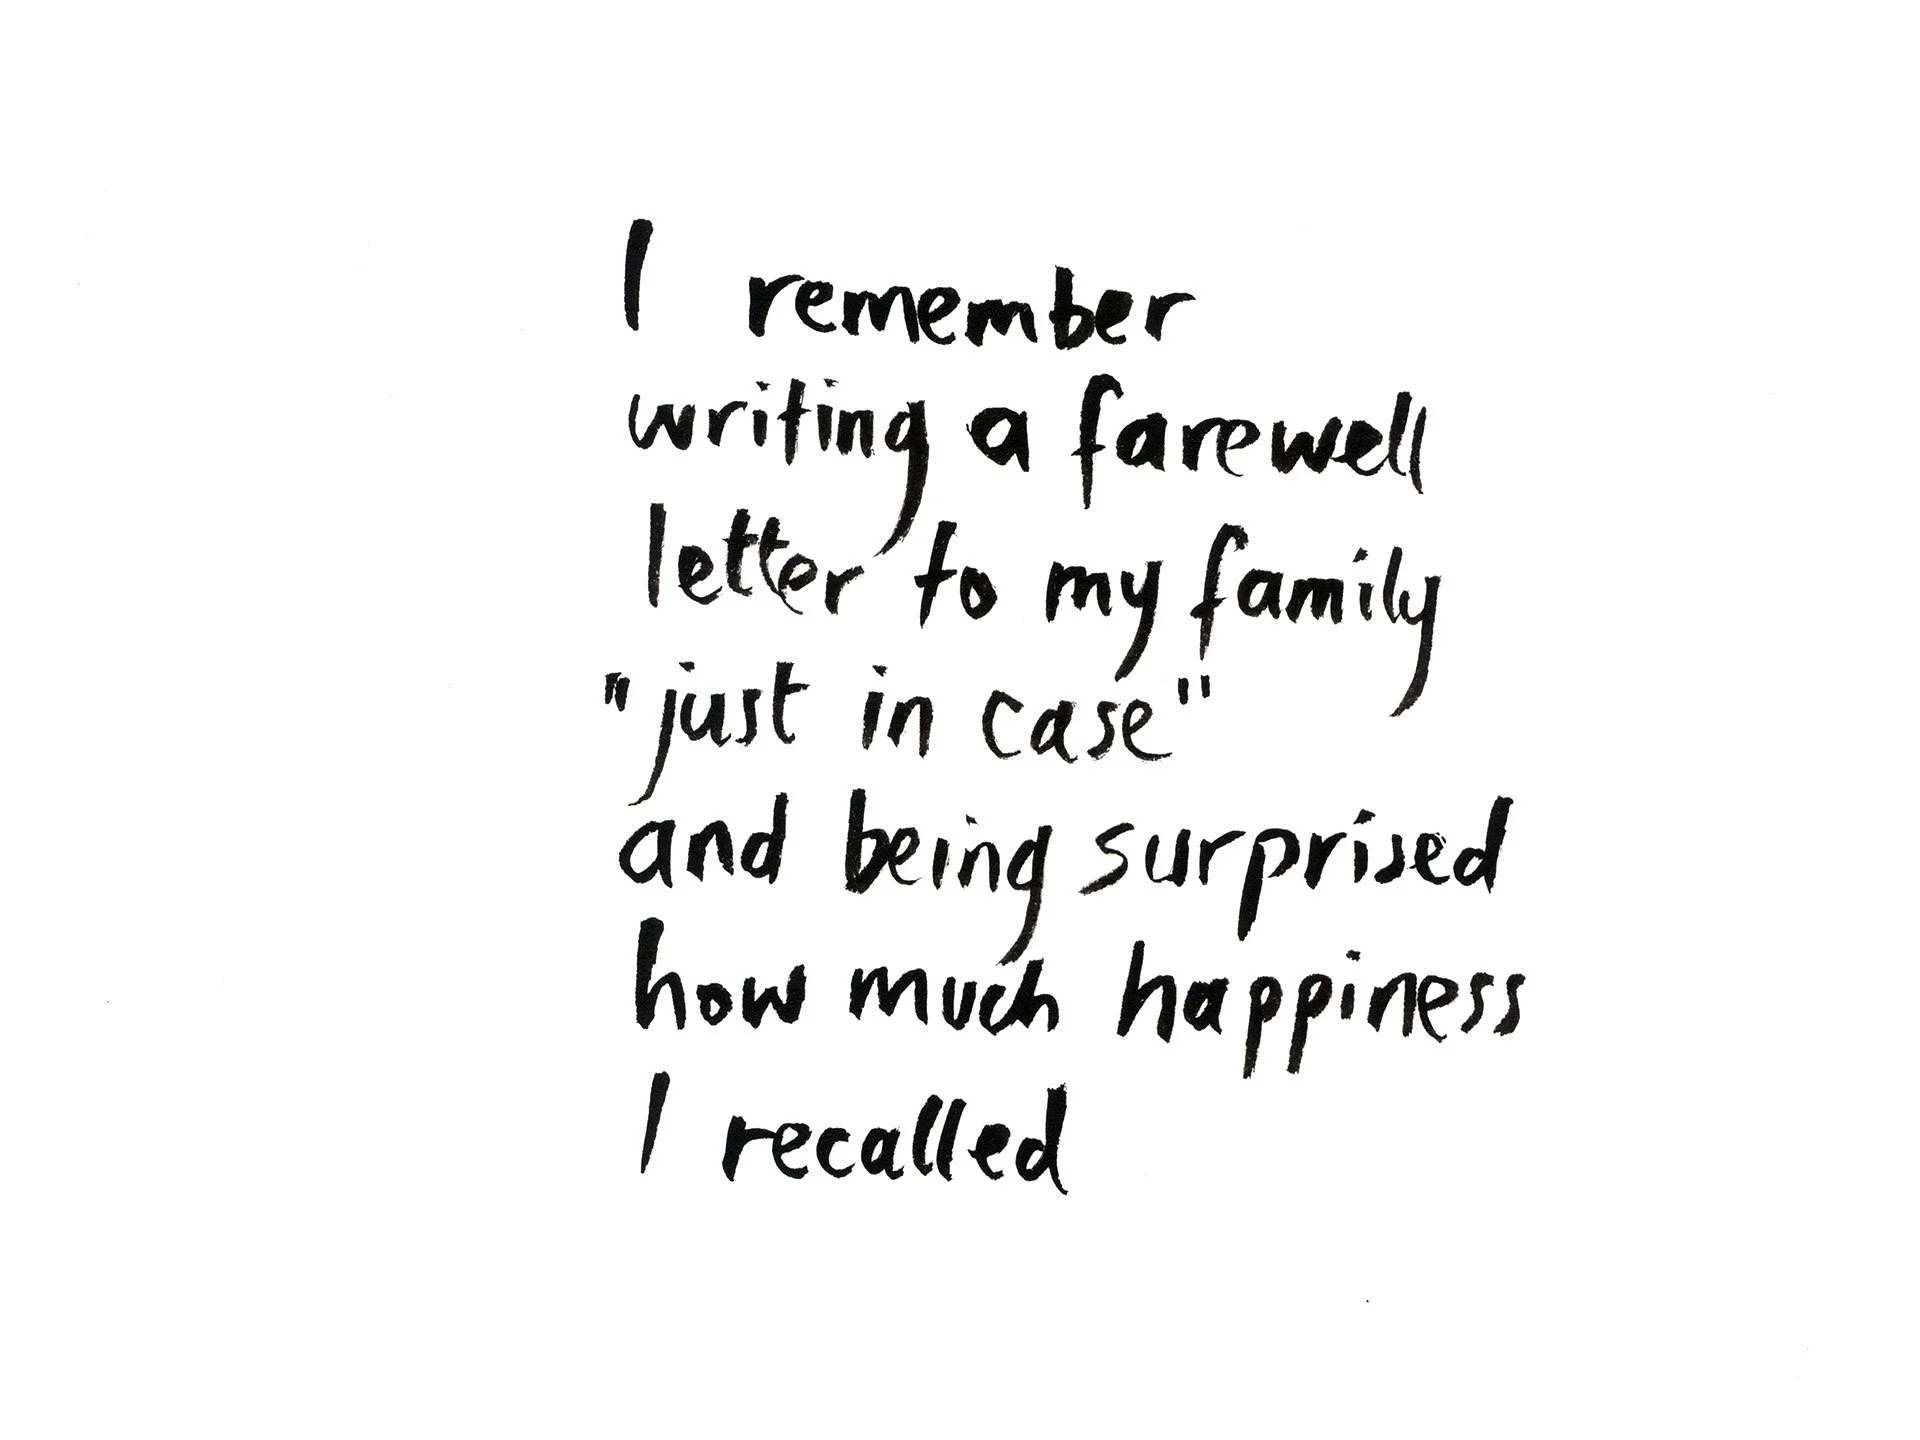 I remember
writing a farewell
letter to my family
"just in case"
and being surprised
how much happiness
I recalled